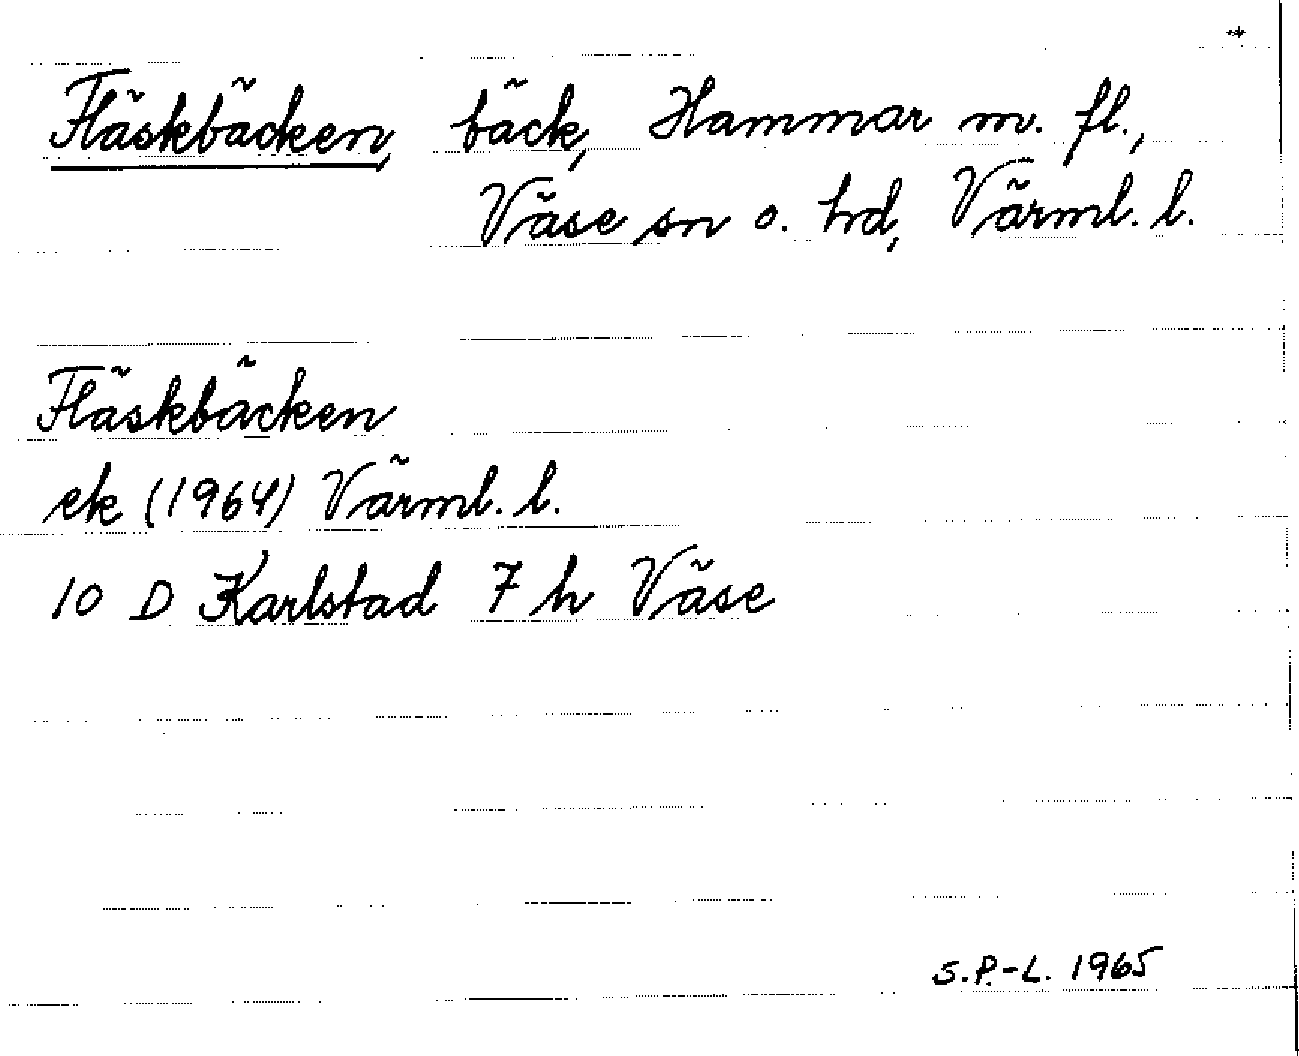 Fläskbäcken, bäck, Hammar m. fl.,
Väse sn o. hd, Värml. l.
Fläskbäcken
ek (1964) Värml. l.
10 D Karlstad 7 h Väse
S.P.-L. 1965